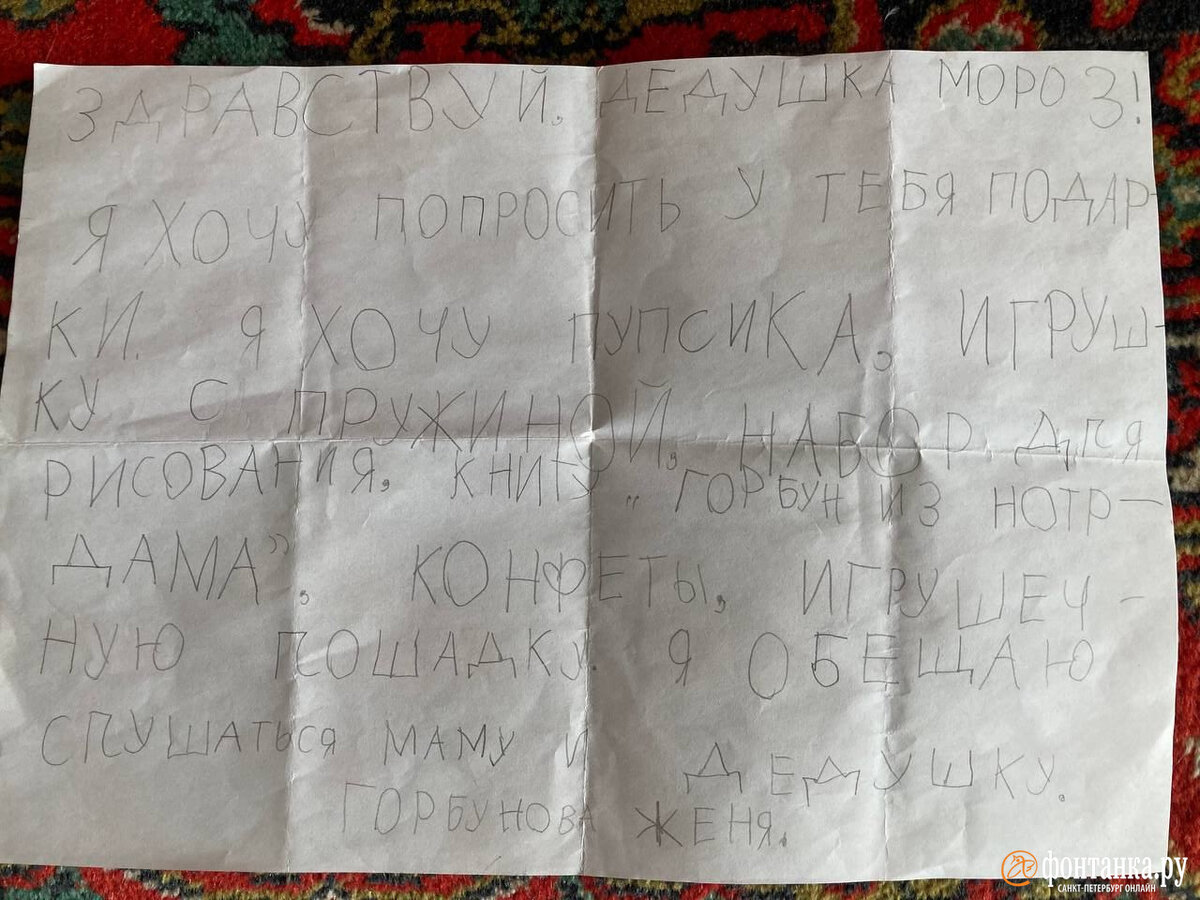 ЗДРАВСТВУЙ, ДЕДУШКА МОРОЗ!
Я ХОЧУ ПОПРОСИТЬ У ТЕБЯ ПОДАР-
КИ. Я ХОЧУ ПУПСИКА, ИГРУШ-
КУ С ПРУЖИНОЙ, НАБОР ДЛЯ
РИСОВАНИЯ, КНИГУ „ГОРБУН ИЗ НОТР-
ДАМА”, КОНФЕТЫ, ИГРУШЕЧ-
НУЮ ЛОШАДКУ. Я ОБЕЩАЮ
СЛУШАТЬСЯ МАМУ И ДЕДУШКУ.
ГОРБУНОВА ЖЕНЯ.
фонтанка.ру
САНКТ-ПЕТЕРБУРГ ОНЛАЙН